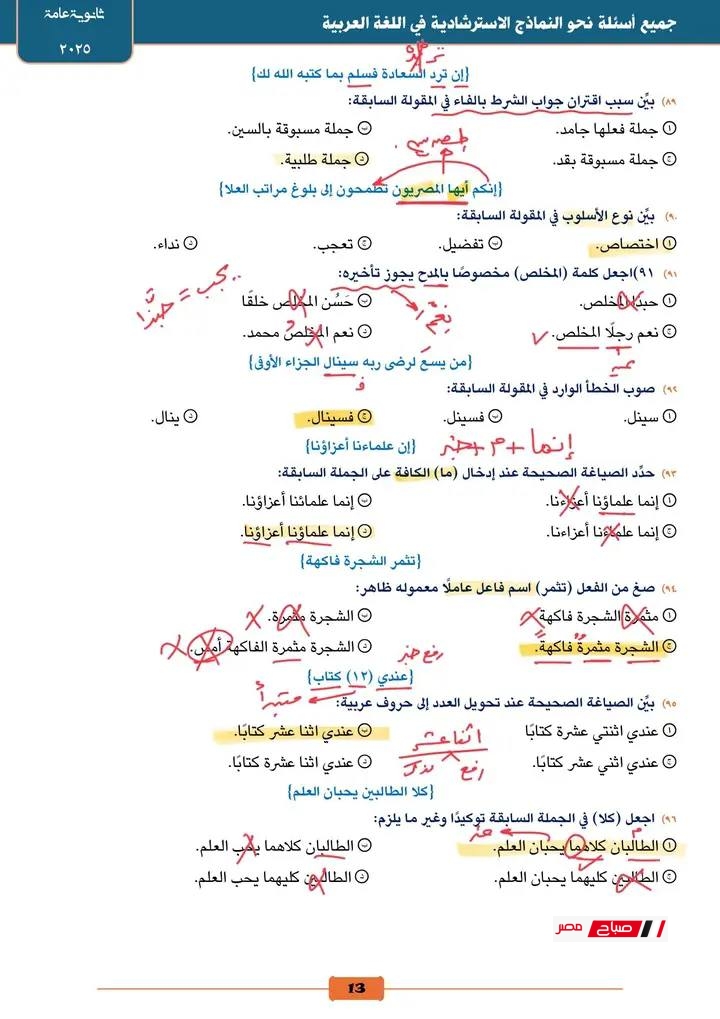 جميع أسئلة نحو النماذج الاسترشادية في اللغة العربية
ثانوية عامة
٢٠٢٥
{إن ترد السعادة فسلم بما كتبه الله لك}
٨٩) بيِّن سبب اقتران جواب الشرط بالفاء في المقولة السابقة:
أ جملة فعلها جامد. ب جملة مسبوقة بالسين.
ج جملة مسبوقة بقد. د جملة طلبية.
{إنكم أيها المصريون تطمحون إلى بلوغ مراتب العلا}
٩٠) بيِّن نوع الأسلوب في المقولة السابقة:
أ اختصاص. ب تفضيل. ج تعجب. د نداء.
٩١) ٩١)اجعل كلمة (المخلص) مخصوصًا بالمدح يجوز تأخيره:
يجب = حبذا
أ حبذا المخلص. ب حَسُن المخلص خلقًا
نِعْمَ
ج نعم رجلًا المخلص. د نعم المخلص محمد.
{من يسعَ لرضى ربه سينال الجزاء الأوفى}
ف
٩٢) صوب الخطأ الوارد في المقولة السابقة:
أ سينل. ب فسينل. ج فسينال. د ينال.
إنما + م + خبر
{إن علماءنا أعزاؤنا}
٩٣) حدِّد الصياغة الصحيحة عند إدخال (ما) الكافة على الجملة السابقة:
أ إنما علماؤنا أعزاءنا. ب إنما علمائنا أعزاؤنا.
ج إنما علماءنا أعزاءنا. د إنما علماؤنا أعزاؤنا.
{تثمر الشجرة فاكهة}
٩٤) صغ من الفعل (تثمر) اسم فاعل عاملًا معموله ظاهر:
أ مثمرة الشجرة فاكهة. ب الشجرة مثمرة.
ج الشجرة مثمرة فاكهة. د الشجرة مثمرة الفاكهة أمس.
رفع خبر
{عندي (١٢) كتاب}
مبتدأ
٩٥) بيِّن الصياغة الصحيحة عند تحويل العدد إلى حروف عربية:
أ عندي اثنتي عشرة كتابًا ب عندي اثنا عشر كتابًا.
اثنا عشر
ج عندي اثني عشر كتابًا. د عندي اثنا عشرة كتابًا.
رفع مذكر
{كلا الطالبين يحبان العلم}
٩٦) اجعل (كلا) في الجملة السابقة توكيدًا وغير ما يلزم:
م
أ الطالبان كلاهما يحبان العلم. ب الطالبان كلاهما يحب العلم.
ج الطالبين كليهما يحبان العلم. د الطالبين كليهما يحب العلم.
صباح مصر
13